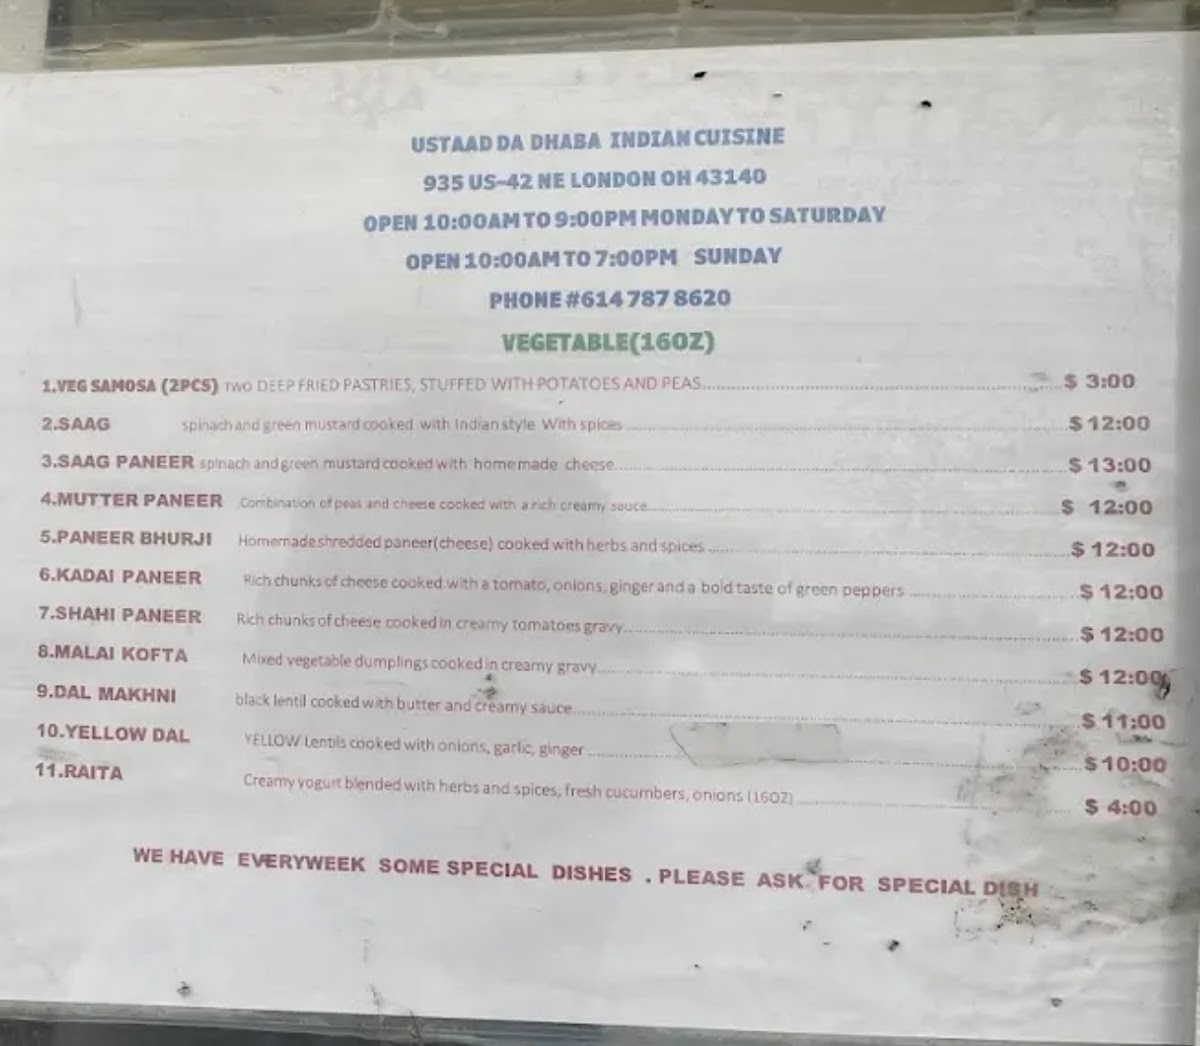 USTAAD DA DHABA INDIAN CUISINE
935 US-42 NE LONDON OH 43140
OPEN 10:00AM TO 9:00PM MONDAY TO SATURDAY
OPEN 10:00AM TO 7:00PM SUNDAY
PHONE #614 787 8620
VEGETABLE(16OZ)
1.VEG SAMOSA (2PCS) TWO DEEP FRIED PASTRIES, STUFFED WITH POTATOES AND PEAS $ 3:00
2.SAAG spinach and green mustard cooked with Indian style With spices $ 12:00
3.SAAG PANEER spinach and green mustard cooked with home made cheese $ 13:00
4.MUTTER PANEER Combination of peas and cheese cooked with a rich creamy sauce $ 12:00
5.PANEER BHURJI Homemade shredded paneer(cheese) cooked with herbs and spices $ 12:00
6.KADAI PANEER Rich chunks of cheese cooked with a tomato, onions, ginger and a bold taste of green peppers $ 12:00
7.SHAHI PANEER Rich chunks of cheese cooked in creamy tomatoes gravy $ 12:00
8.MALAI KOFTA Mixed vegetable dumplings cooked in creamy gravy $ 12:00
9.DAL MAKHNI black lentil cooked with butter and creamy sauce $ 11:00
10.YELLOW DAL YELLOW Lentils cooked with onions, garlic, ginger $ 10:00
11.RAITA Creamy yogurt blended with herbs and spices, fresh cucumbers, onions (16OZ) $ 4:00
WE HAVE EVERYWEEK SOME SPECIAL DISHES . PLEASE ASK FOR SPECIAL DISH